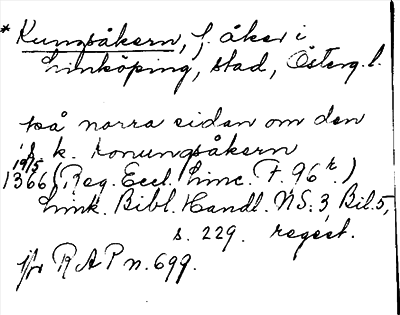 * Kungsåkern, f. åker i
Linköping, stad, Österg. l.
på norra sidan om den
s k. Konungsåkern
19/5
1366 (Reg. Eccl. Linc. F. 96 r.)
Link. Bibl. Handl. NS. 3, Bil. 5,
s. 229. regest.
jfr RAP n. 699.